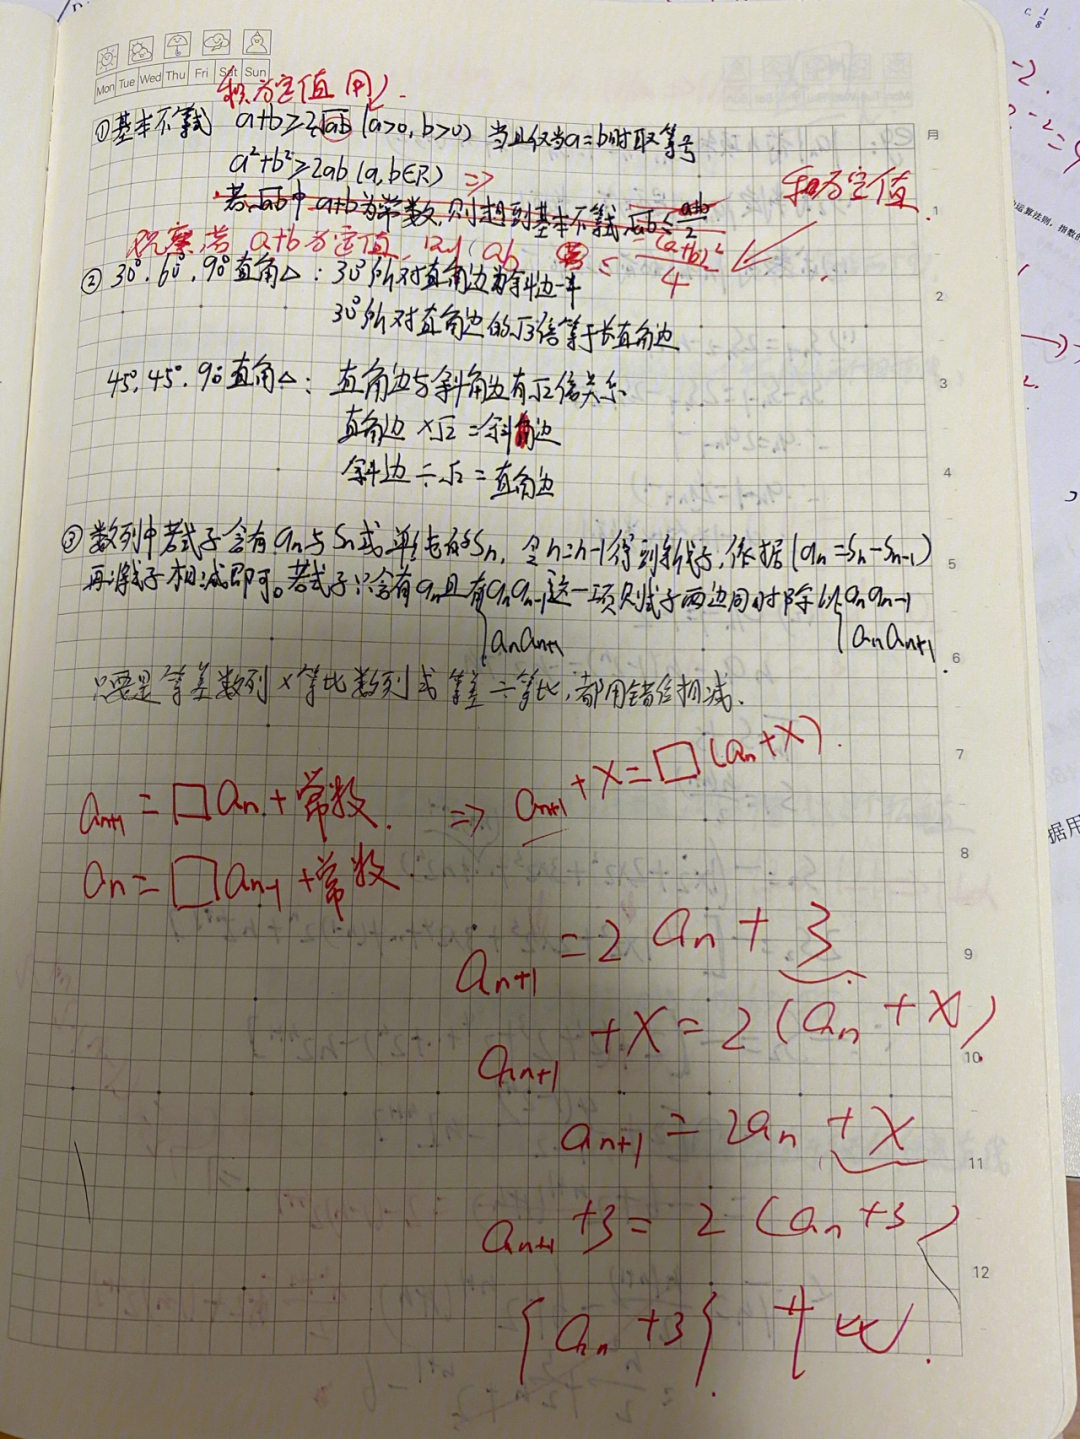 Mon Tue Wed Thu Fri Sat Sun
积为定值 用
①基本不等式 a+b≥2√ab (a>0, b>0) 当且仅当a=b时取等号
a²+b²≥2ab (a,b∈R) ⇒
和为定值
若√ab中 a+b为常数,则想到基本不等式√ab≤(a+b)/2
观察若 a+b为定值,则 ab ≤ (a+b)²/4
②30°. 60°. 90°直角△: 30°所对直角边为斜边一半
30°所对直角边的√3倍等于长直角边
45°. 45°. 90°直角△: 直角边与斜角边有√2倍关系
直角边×√2=斜角边
斜边÷√2=直角边
③数列中若式子含有an与Sn或单独有Sn, 令n=n-1得到新式子,依据(an=Sn-Sn-1)
再将式子相减即可。若式子只含有an且有anan-1这一项则式子两边同时除以anan-1
anan+1 anan+1
只要是等差数列×等比数列或等差÷等比,都用错位相减.
an+1=□an+常数. ⇒ an+1+x=□(an+x).
an=□an-1+常数.
an+1=2an+3
an+1+x=2(an+x)
an+1=2an+x
an+1+3=2(an+3)
{an+3} 等比.
月
1
2
3
4
5
6
7
8
9
10
11
12
C. 1/8
-2.
运算法则,指数的
据用